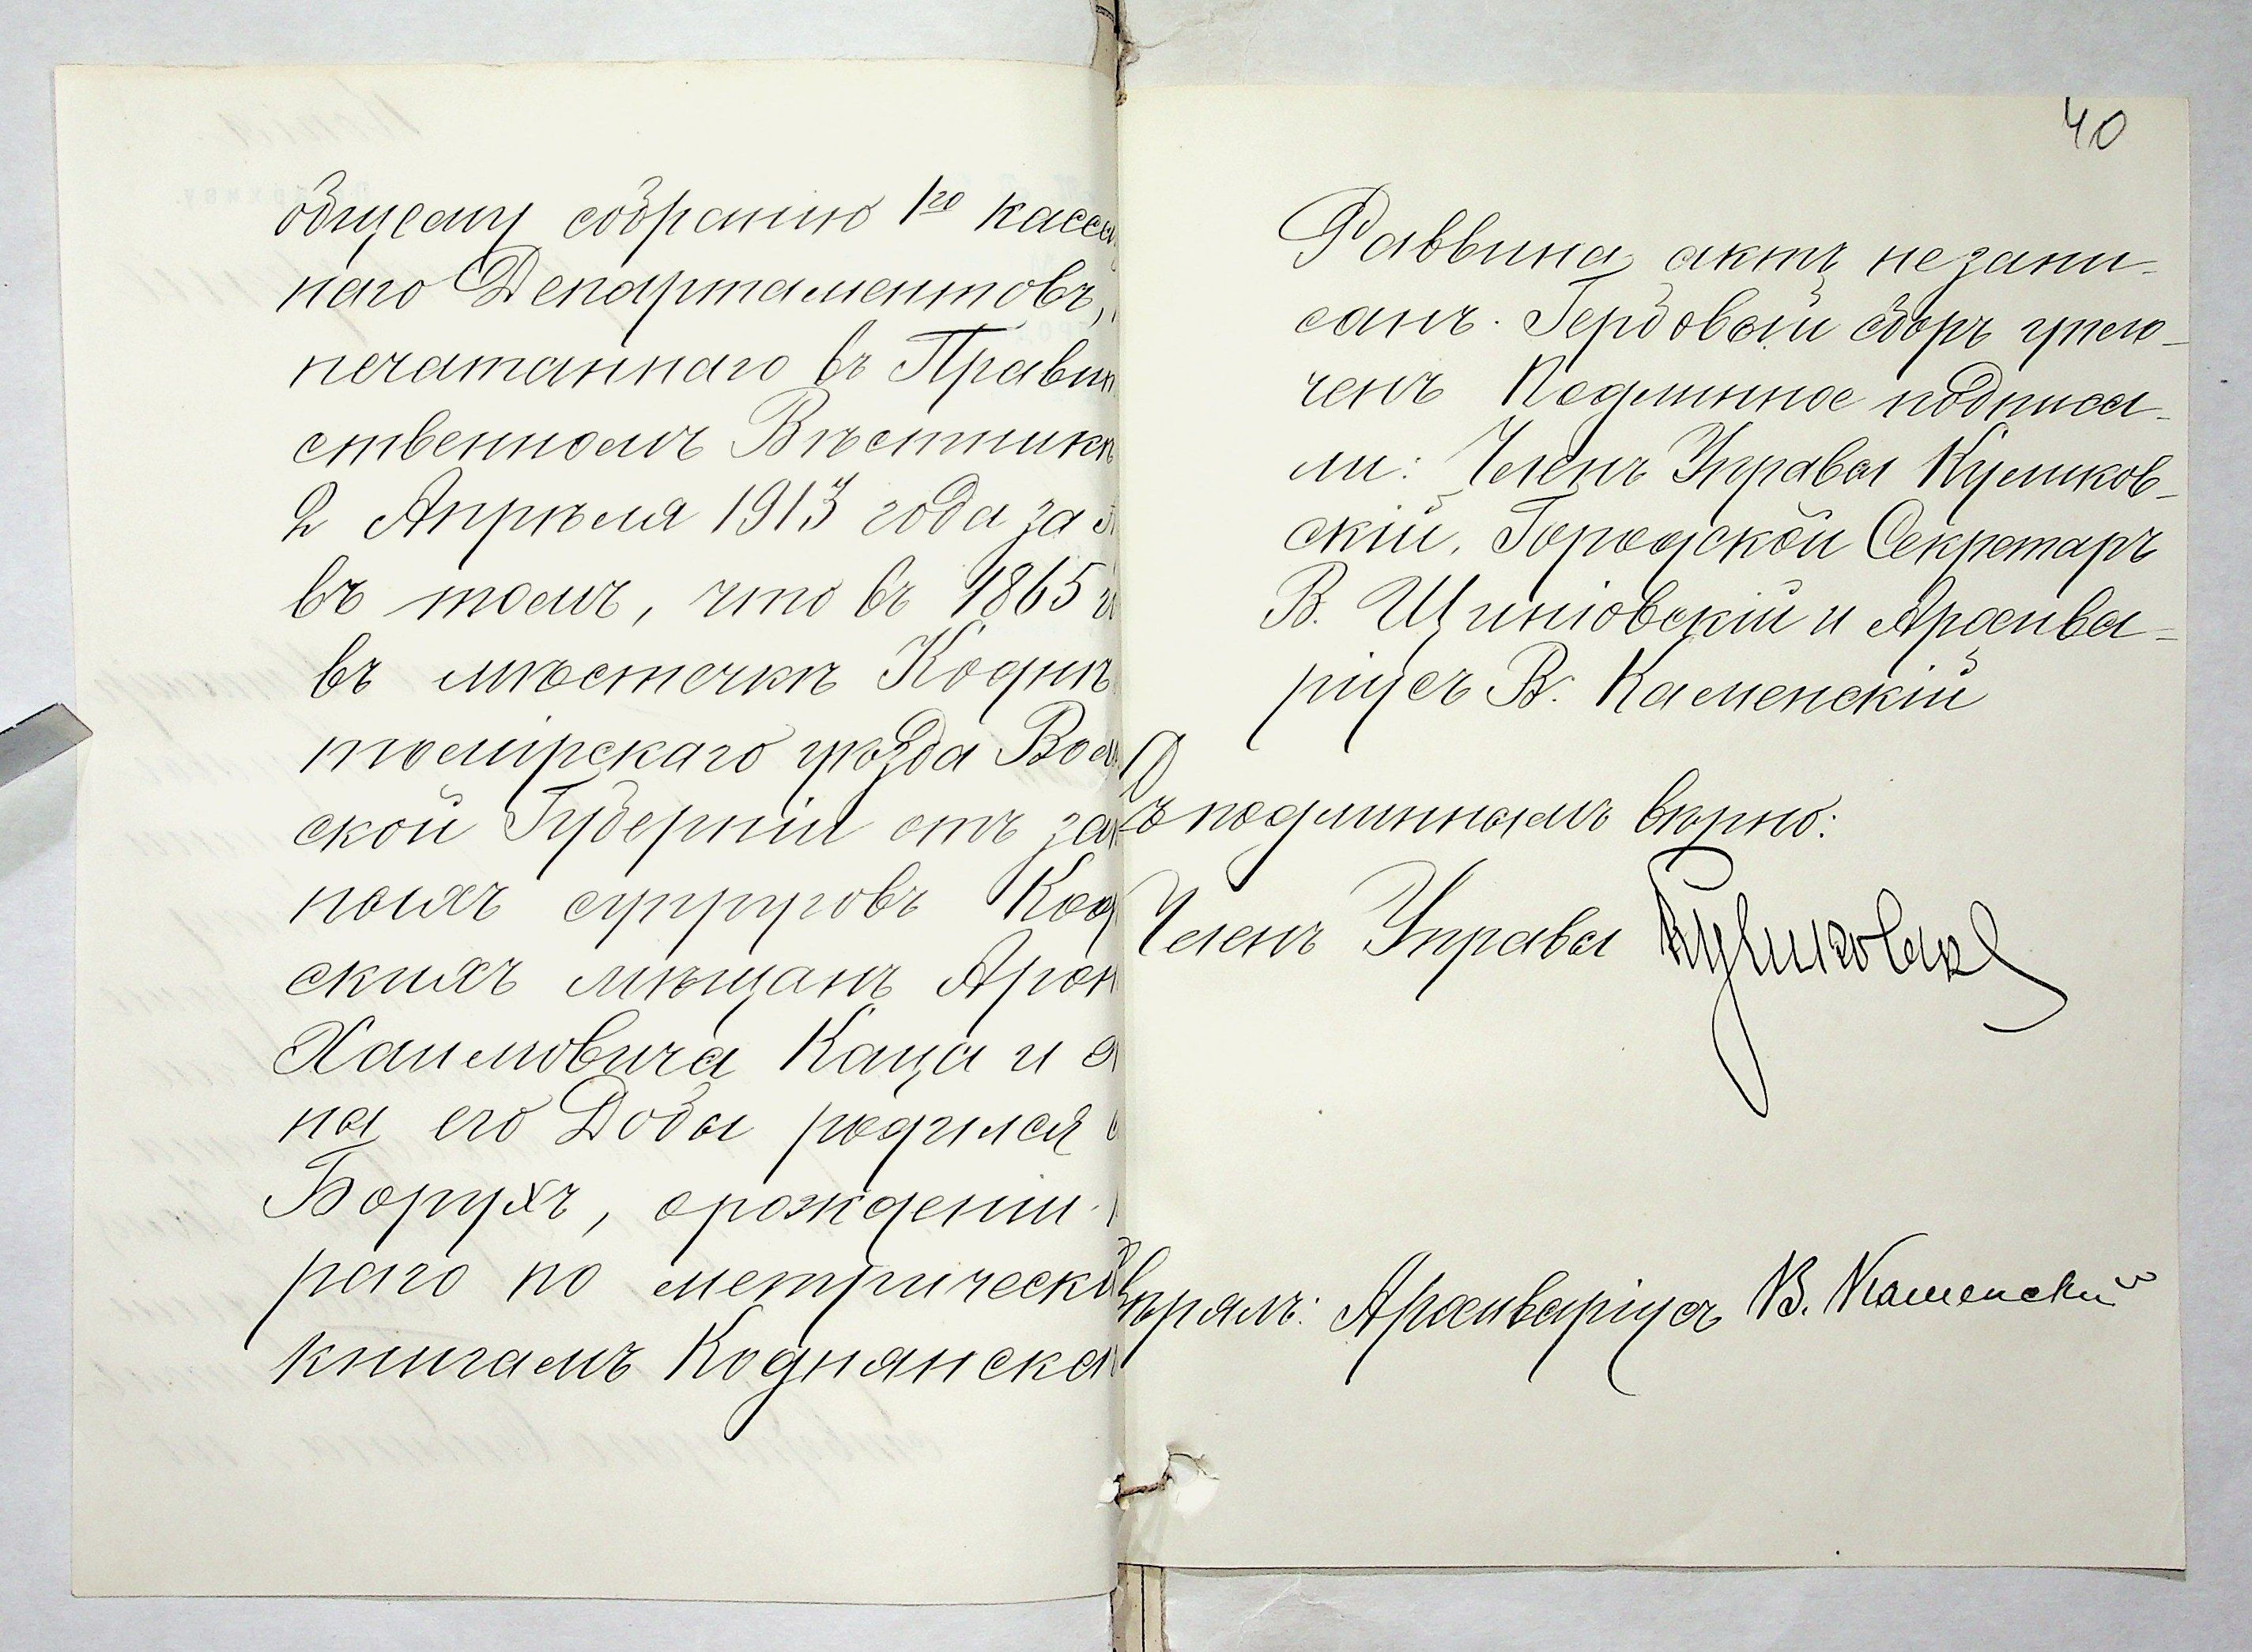 общему собранію 1го касса
наго Департаментовъ,
печатаннаго въ Правит
ственномъ Вѣстникѣ
2 Апрѣля 1913 года за
въ томъ, что въ 1865
въ мѣстечкѣ Коднѣ
томірскаго уѣзда Вол
ской Губерніи отъ зак
ныхъ супруговъ Код
скихъ мѣщанъ Арон
Хаимовича Каца и
на его Добы родился
Борухъ, орожденіи
раго по метрически
книгамъ Коднянска
40
Раввина актъ незапи-
санъ. Гербовый сборъ упло-
ченъ Подлинное подписа-
ли: Членъ Управы Куликов-
скій, Городской Секретарь
В. Щиніовскій и Архива-
ріусъ В. Каменскій
Съ подлиннымъ вѣрно:
Членъ Управы Куликовск
Свѣрялъ: Архиваріусъ В. Каменскій